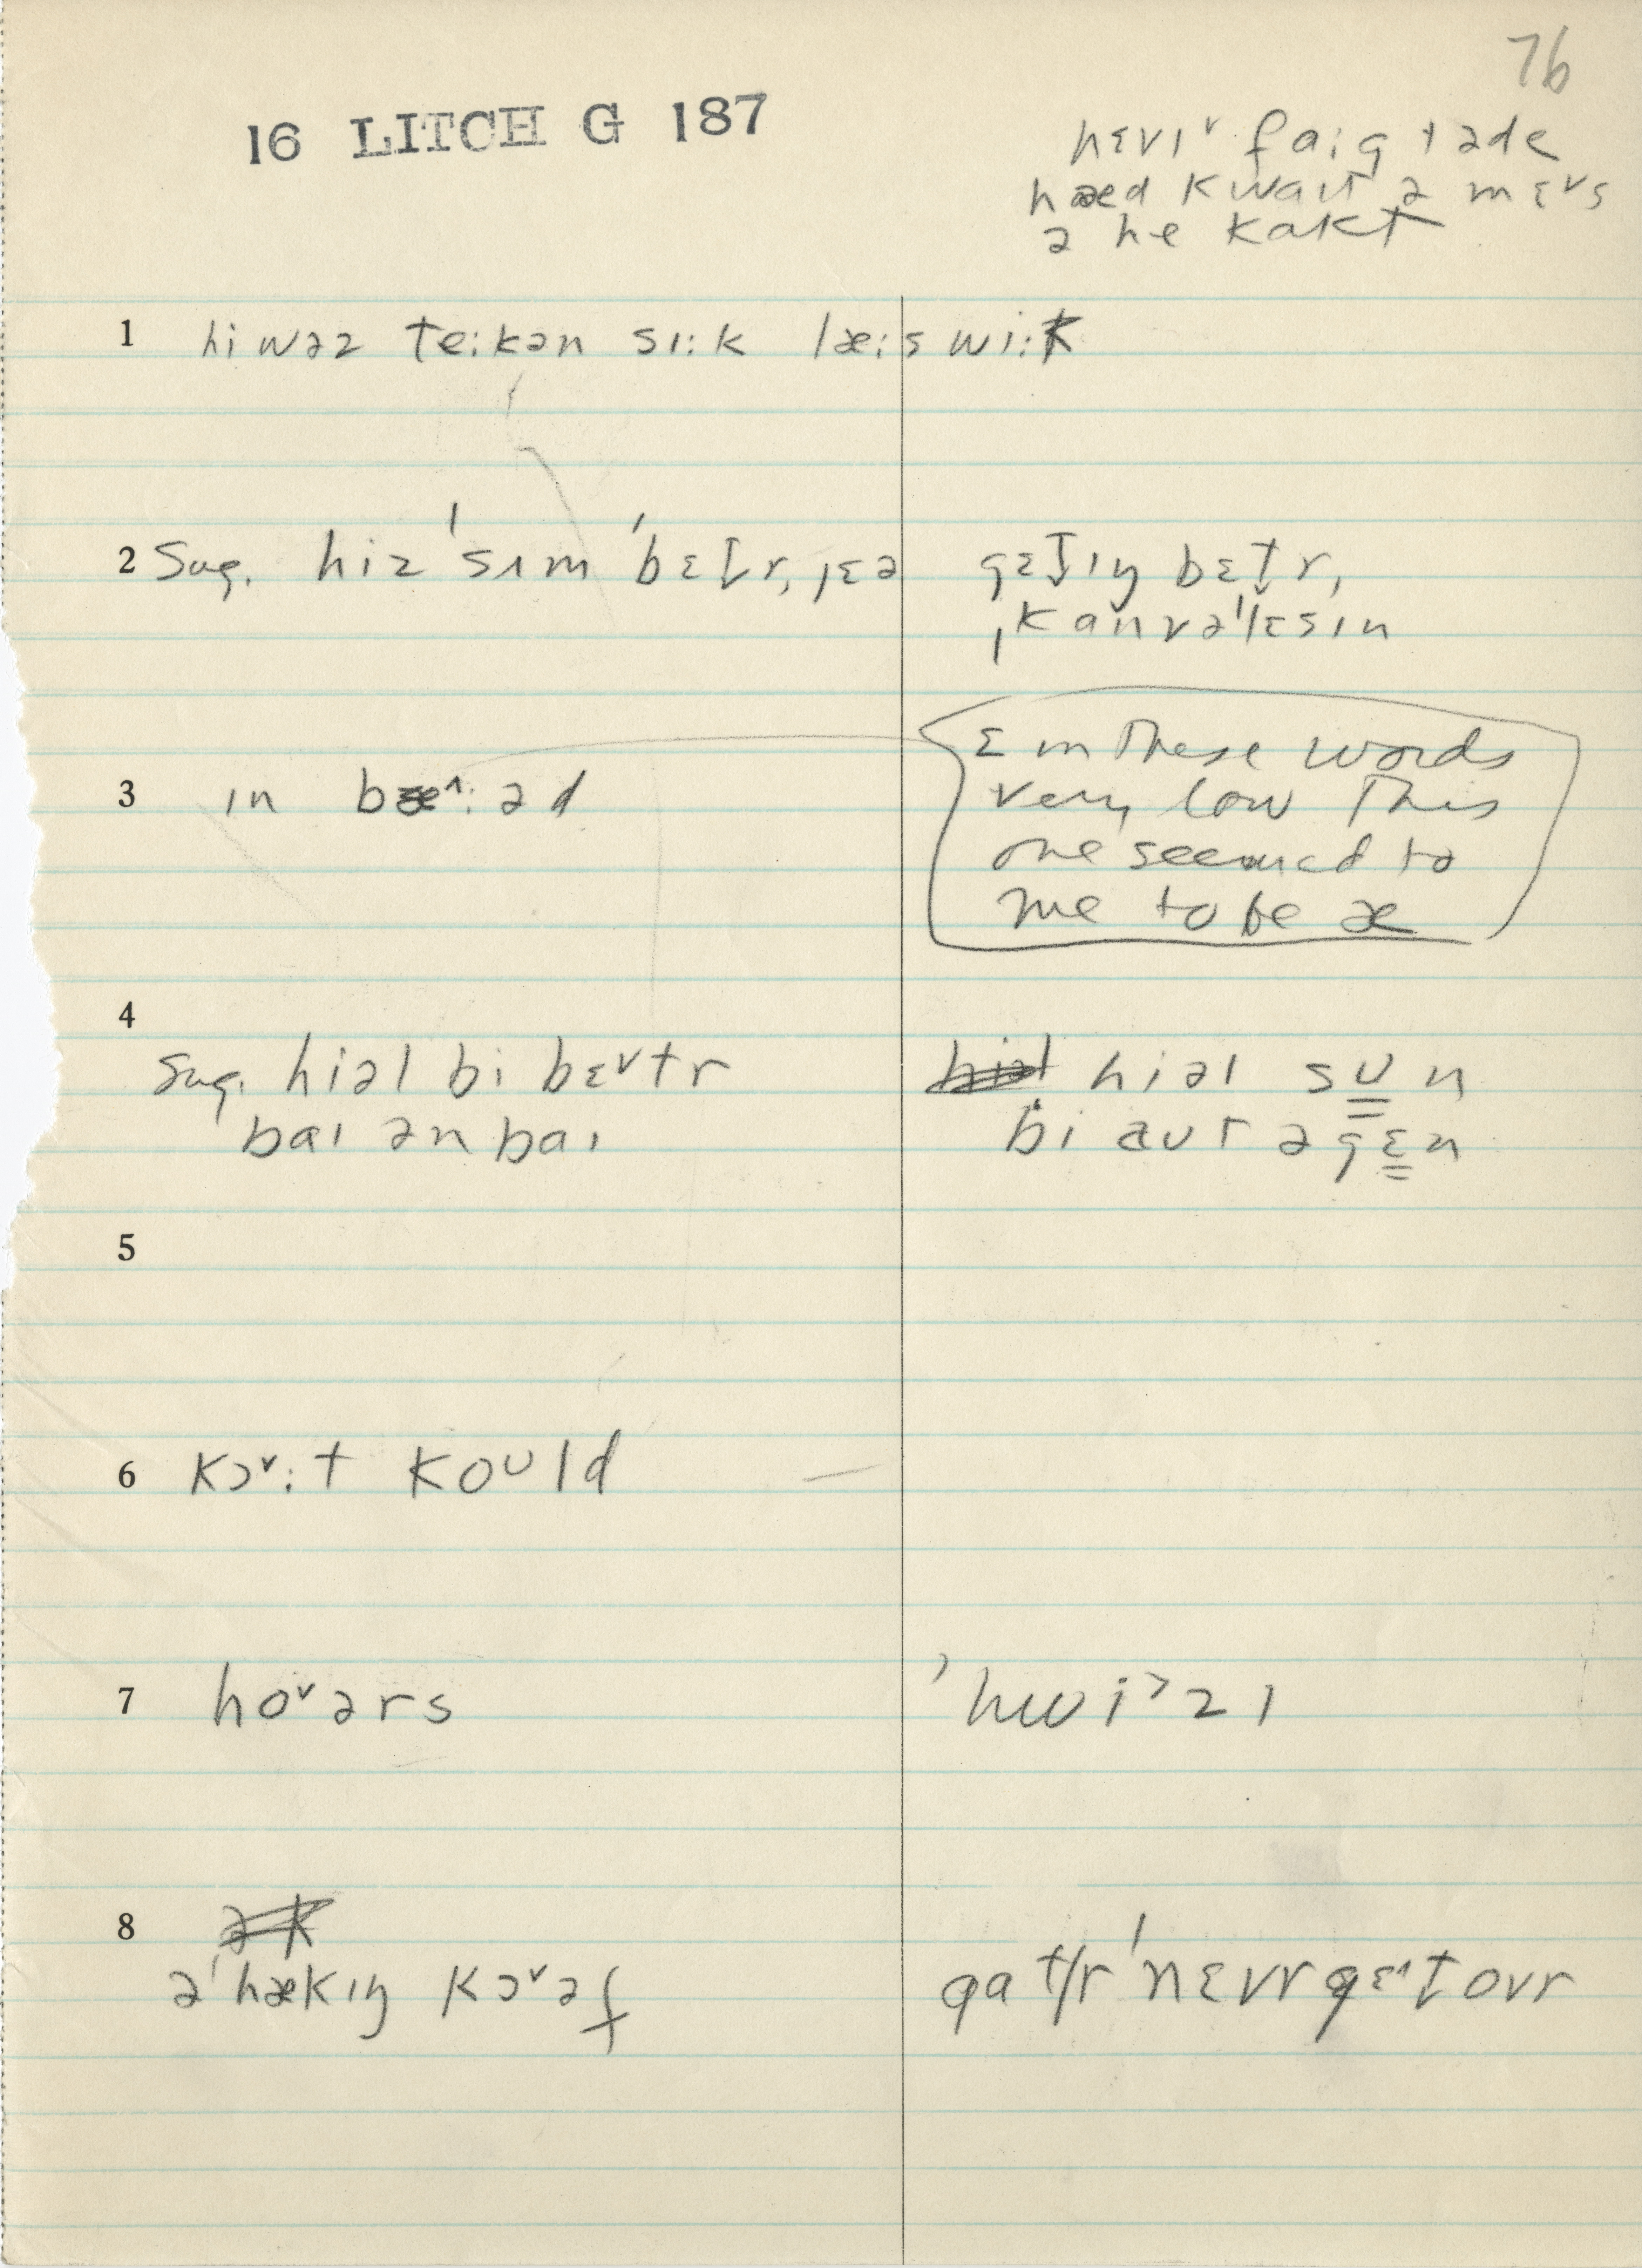 76
16 LITCH G 187
nɛvɪ˅r faig ɪ ade
hæd kwaɪt ə mɛ˅s
ə he kakt
1 hi wəz teːkən sɪːk læːs wiːk
2 Sug. hiz 'sʌm 'bɛt̬r, ˌjɛə
gɛt̬ɪŋ bɛt̬r,
ˌkanvə'lɛsɪn
3 ɪn bæ˄ːəd
ɛ in these words
very low This
one seemed to
me to be æ
4
Sug. hiəl bi bɛ˅tr
baɪ ən baɪ
hiəl sᴜn
bi aut əgɛn
5
6 kɔ˅ːt koᴜld
7 ho˅ərs
'hwi˃zɪ
8
ə'hækɪŋ kɔ˅əf
gatʃr 'nɛvr gɛ˄t̬ ovr